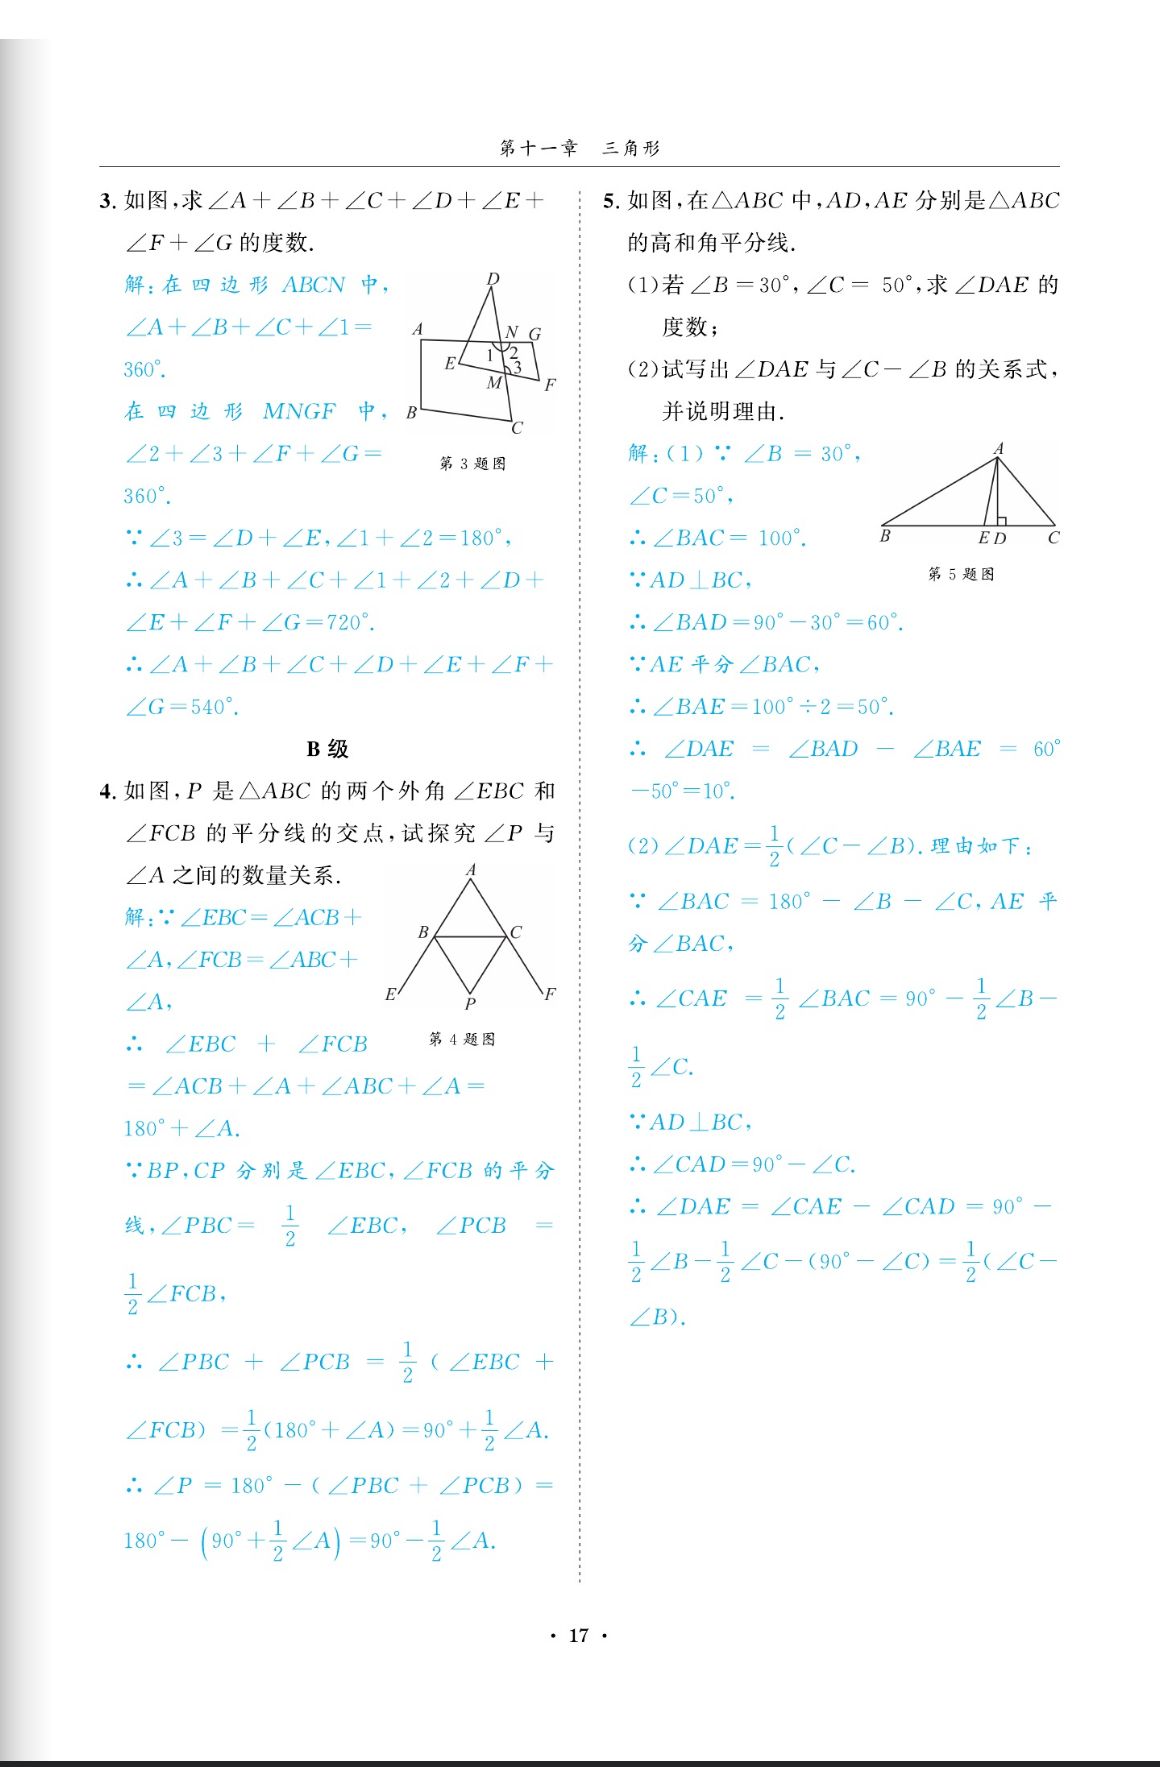 第十一章　三角形
3. 如图,求∠A+∠B+∠C+∠D+∠E+
∠F+∠G的度数.
解:在四边形ABCN中,
∠A+∠B+∠C+∠1=
360°.
在四边形MNGF中,
∠2+∠3+∠F+∠G=
360°.
D
A
N
G
E
1
2
3
M
F
B
C
第3题图
∵∠3=∠D+∠E,∠1+∠2=180°,
∴∠A+∠B+∠C+∠1+∠2+∠D+
∠E+∠F+∠G=720°.
∴∠A+∠B+∠C+∠D+∠E+∠F+
∠G=540°.
B级
4. 如图,P是△ABC的两个外角∠EBC和
∠FCB的平分线的交点,试探究∠P与
∠A之间的数量关系.
解:∵∠EBC=∠ACB+
∠A,∠FCB=∠ABC+
∠A,
∴∠EBC+∠FCB
=∠ACB+∠A+∠ABC+∠A=
180°+∠A.
A
B
C
E
P
F
第4题图
∵BP,CP分别是∠EBC,∠FCB的平分
线,∠PBC=1/2∠EBC,∠PCB=
1/2∠FCB,
∴∠PBC+∠PCB=1/2(∠EBC+
∠FCB)=1/2(180°+∠A)=90°+1/2∠A.
∴∠P=180°-(∠PBC+∠PCB)=
180°-(90°+1/2∠A)=90°-1/2∠A.
5. 如图,在△ABC中,AD,AE分别是△ABC
的高和角平分线.
(1)若∠B=30°,∠C=50°,求∠DAE的
度数;
(2)试写出∠DAE与∠C-∠B的关系式,
并说明理由.
解:(1)∵∠B=30°,
∠C=50°,
∴∠BAC=100°.
∵AD⊥BC,
A
B
E
D
C
第5题图
∴∠BAD=90°-30°=60°.
∵AE平分∠BAC,
∴∠BAE=100°÷2=50°.
∴∠DAE=∠BAD-∠BAE=60°
-50°=10°.
(2)∠DAE=1/2(∠C-∠B).理由如下:
∵∠BAC=180°-∠B-∠C,AE平
分∠BAC,
∴∠CAE=1/2∠BAC=90°-1/2∠B-
1/2∠C.
∵AD⊥BC,
∴∠CAD=90°-∠C.
∴∠DAE=∠CAE-∠CAD=90°-
1/2∠B-1/2∠C-(90°-∠C)=1/2(∠C-
∠B).
· 17 ·